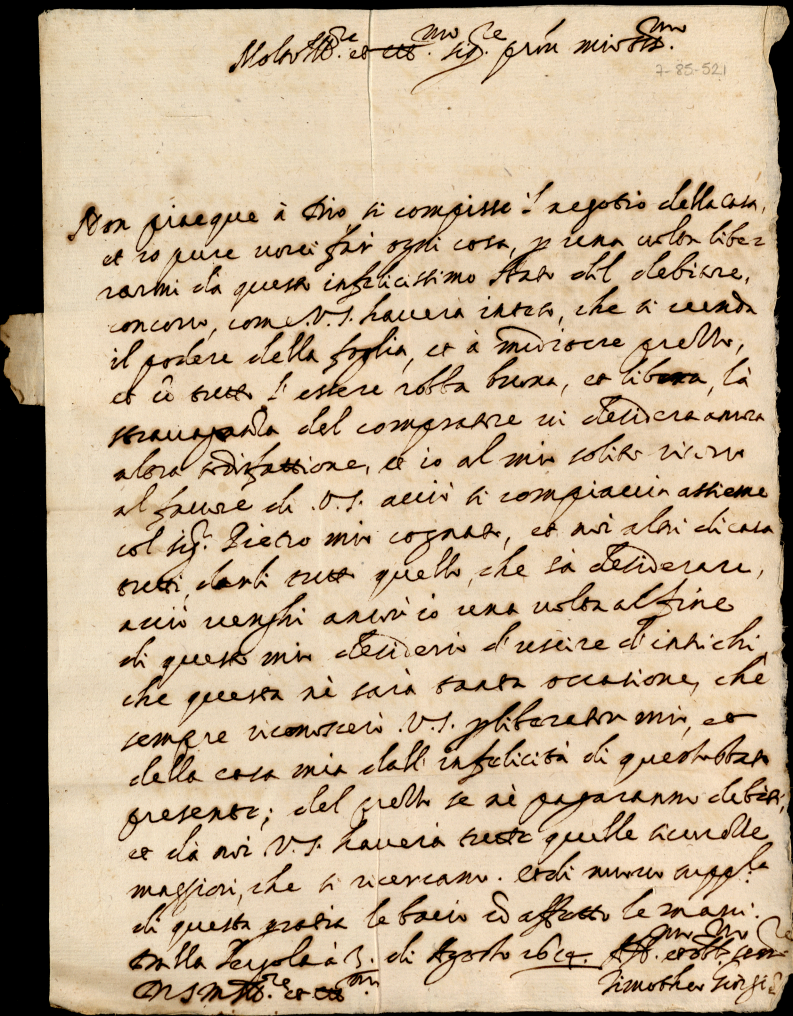 Molto Ill.re et ecc.mo sig.re prōn mio oss.mo
7-85-521
Non piacque à Dio, si compisse l negotio della casa,
et io pure vorei far ogni cosa, p una volta liber=
rarmi da questo infelicissimo stato del debitore,
concorro, come V.S. haverà inteso, che si venda
il podere della foglia, et à mediocre prezzo,
et cō tutto l essere robba buona, et libera, la
stravaganza del compratore vi desidera ancora
altra sodisfattione, et io al mio solito ricorro
al favore di V.S. acciò si compiaccia assieme
col sig.r Pietro mio cognato, et noi altri di casa
tutti, darli tutto quello, che sà desiderare,
acciò venghi ancor io una volta al fine
di questo mio desiderio d'uscire d'intrichi,
che questa nè sarà tanta occasione, che
sempre riconoscerò V.S. p liberator mio, et
della casa mia dall infelicità di questo stato
presente; del prezzo se nè pagaranno debiti,
et dà noi V.S. haverà tutte quelle sicurezze
maggiori, che si ricercano. et di nuovo suppl.
di questa gratia le bacio cō affetto le mani.
Dalla Pergola à 3. di Agosto
D V S M Ill.re et ecc.ma
Aff.mo et obb.mo ser.re
Timotheo